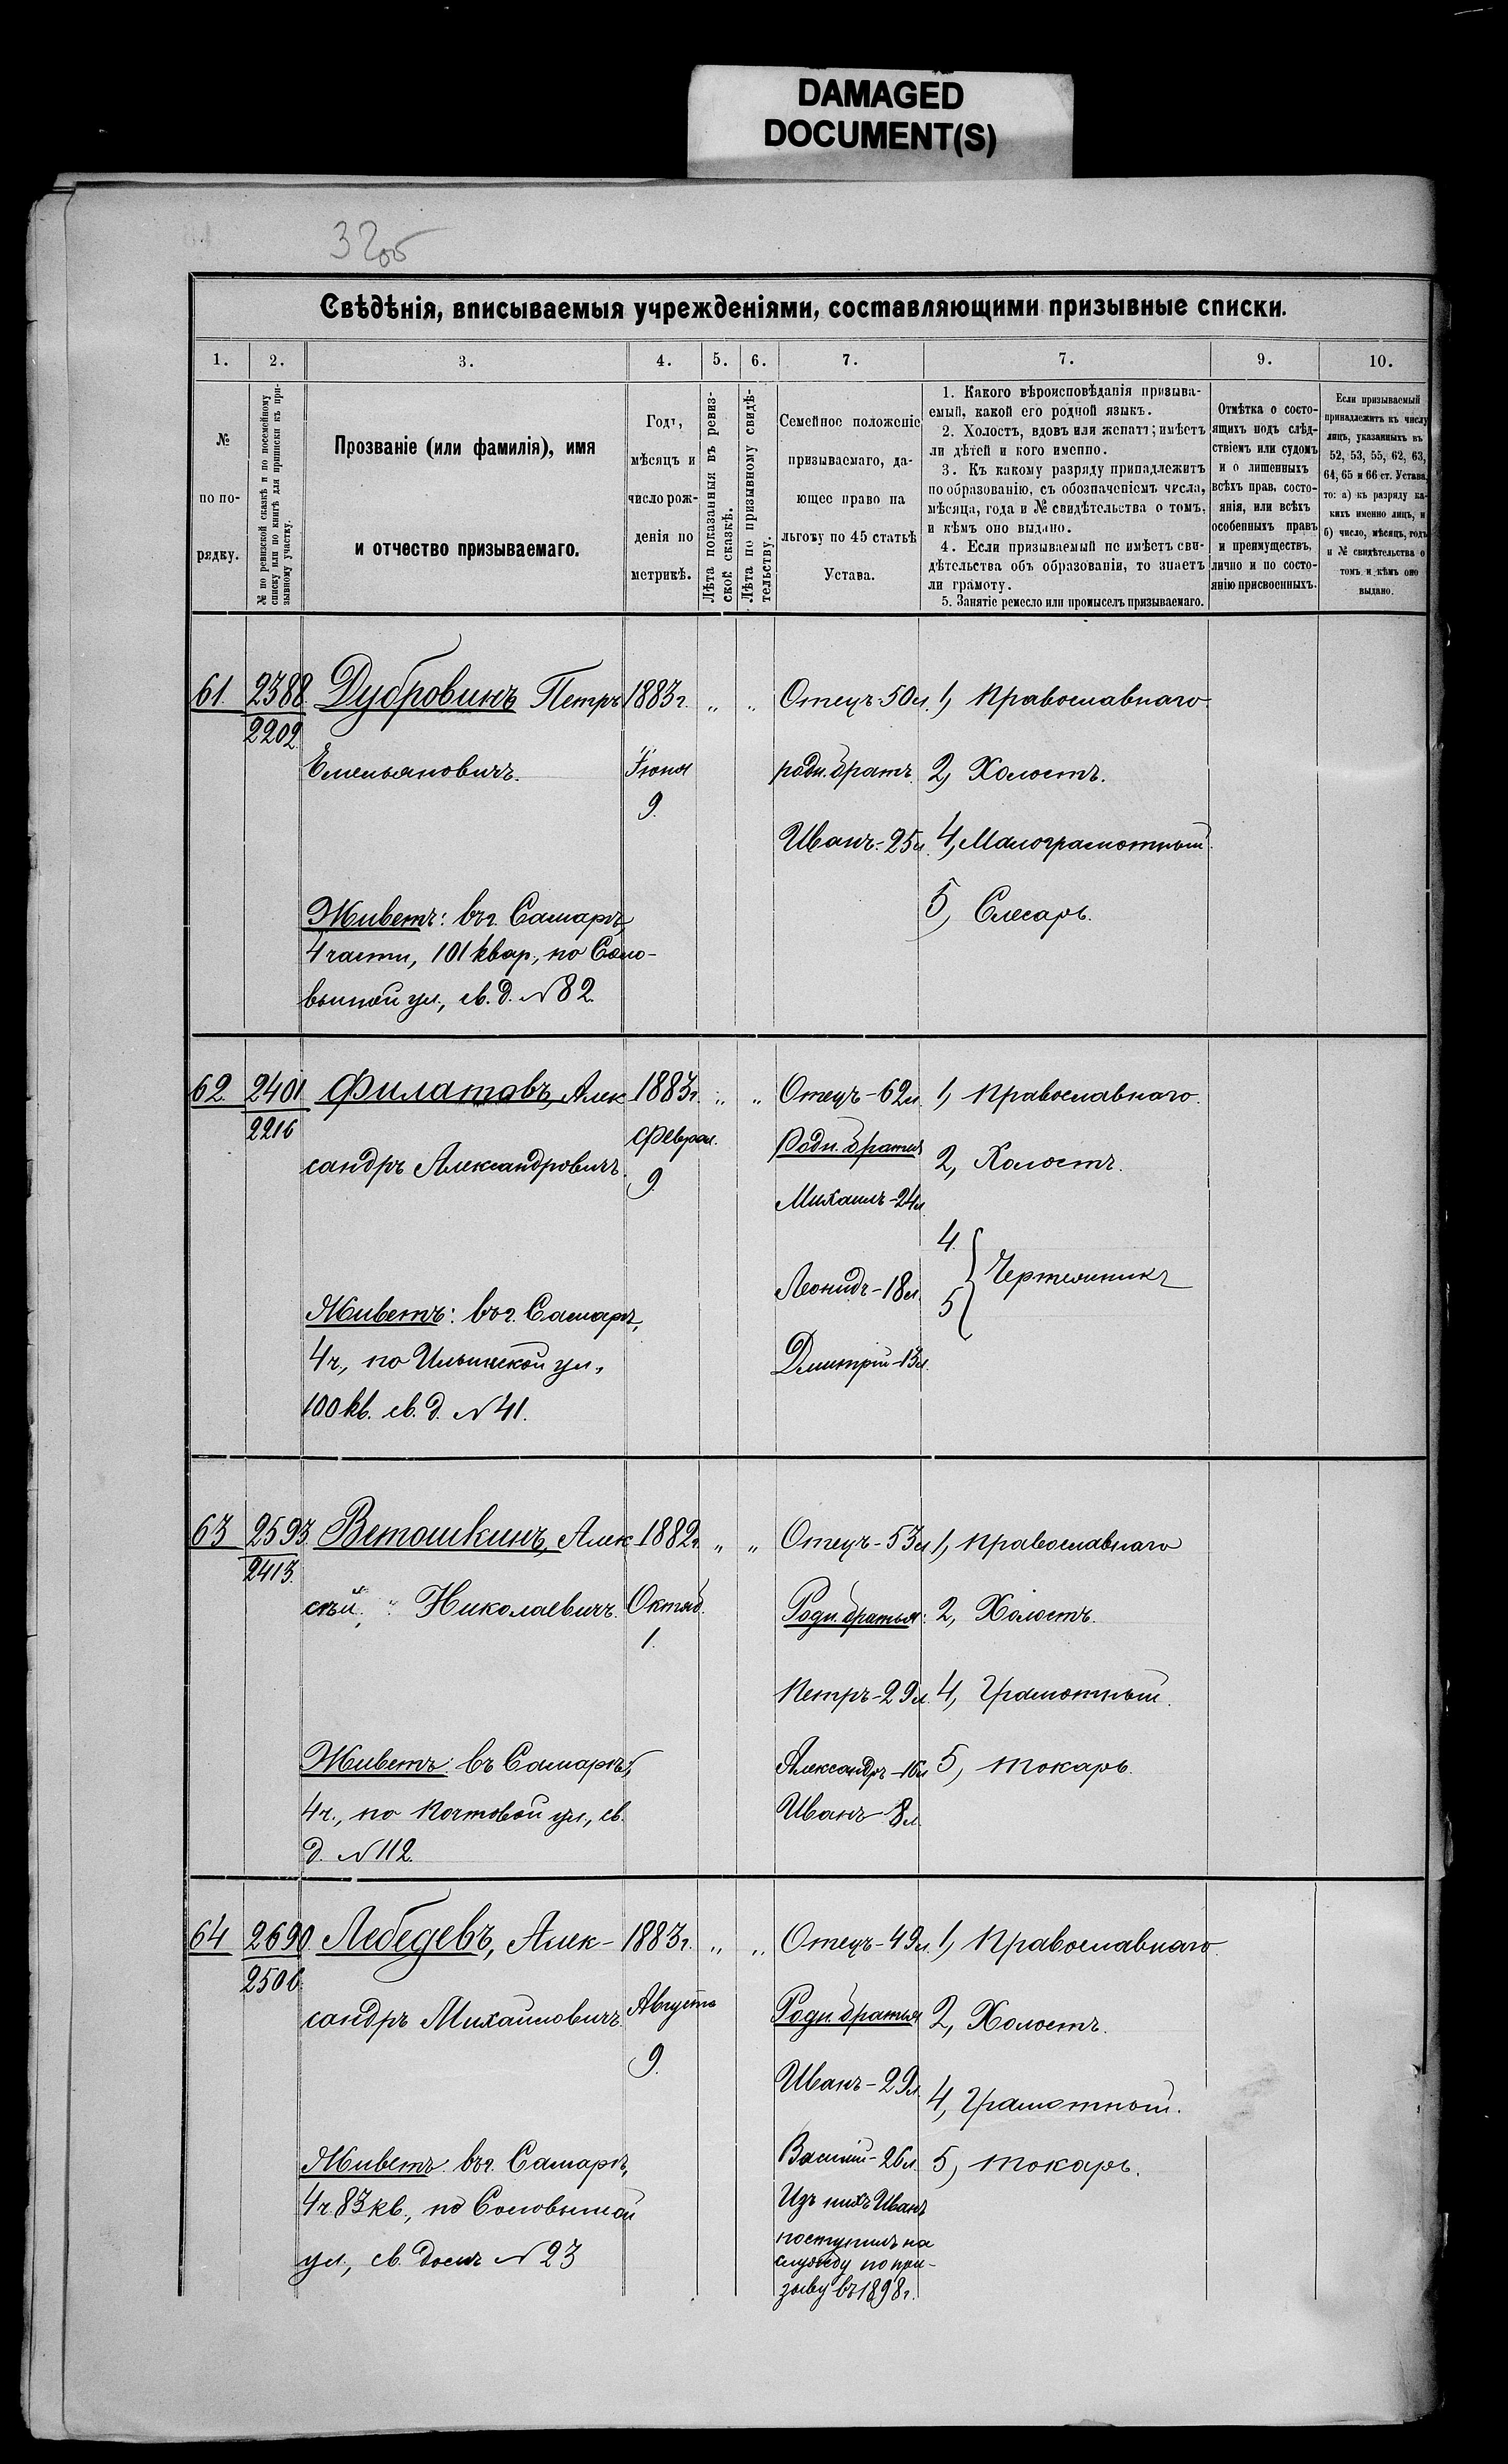 DAMAGED
DOCUMENT(S)
32об
Свѣдѣнія, вписываемыя учрежденіями, составляющими призывные списки.
1. 2. 3. 4. 5. 6. 7. 7. 9. 10.
№
по по-
рядку.
№ по ревизской сказкѣ и по посемейному
списку или по книгѣ для приписки къ при-
зывному участку.
Прозваніе (или фамилія), имя
и отчество призываемаго.
Годъ,
мѣсяцъ и
число рож-
денія по
метрикѣ.
Лѣта показанныя въ ревиз-
ской сказкѣ.
Лѣта по призывному свидѣ-
тельству.
Семейное положеніе
призываемаго, да-
ющее право на
льготу по 45 статьѣ
Устава.
1. Какого вѣроисповѣданія призыва-
емый, какой его родной языкъ.
2. Холостъ, вдовъ или женатъ; имѣетъ
ли дѣтей и кого именно.
3. Къ какому разряду принадлежитъ
по образованію, съ обозначеніемъ числа,
мѣсяца, года и № свидѣтельства о томъ,
и кѣмъ оно выдано.
4. Если призываемый не имѣетъ сви-
дѣтельства объ образованіи, то знаетъ
ли грамоту.
5. Занятіе ремесло или промыселъ призываемаго.
Отмѣтка о состо-
ящихъ подъ слѣд-
ствіемъ или судомъ
и о лишенныхъ
всѣхъ правъ, состо-
янія, или всѣхъ
особенныхъ правъ
и преимуществъ,
лично и по состо-
янію присвоенныхъ.
Если призываемый
принадлежитъ къ числу
лицъ, указанныхъ въ
52, 53, 55, 62, 63,
64, 65 и 66 ст. Устава,
то: а) къ разряду ка-
кихъ именно лицъ, и
б) число, мѣсяцъ, годъ
и № свидѣтельства о
томъ и кѣмъ оно
выдано.
61. 2388 Дубровинъ Петръ 1883г. „ „ Отецъ-50л. 1, Православнаго.
2202.
Емельяновичъ. Іюня родн. братъ. 2, Холостъ.
9.
Иванъ-25л. 4, Малограмотный.
5, Слесарь.
Живетъ: въ г. Самарѣ,
4 части, 101 квар., по Соло-
вьиной ул., св. д. №82.
62. 2401 Филатовъ, Алек 1883г. „ „ Отецъ-62л. 1, Православнаго.
2216
сандръ Александровичъ. Феврал. Родн. братья 2, Холостъ.
9.
Михаилъ-24л.
4.
Леонидъ-18л. Чертежникъ
5
Дмитрій-13л.
Живетъ: въ г. Самарѣ,
4ч., по Ильинской ул.,
100 кв. св. д. №41.
63 2593. Ветошкинъ, Алек 1882г. „ „ Отецъ-53л 1, Православнаго
2413.
сѣй, „ Николаевичъ. Октяб. Родн. братья: 2, Холостъ.
1.
Петръ-29л. 4, Грамотный.
Александръ-16л 5, токарь.
Иванъ-8л.
Живетъ: въ Самарѣ,
4ч., по Почтовой ул., св.
д. №112.
64 2690. Лебедевъ, Алек- 1883г. „ „ Отецъ-49л. 1, Православнаго.
2506.
сандръ Михаиловичъ. Августа Родн. братья 2, Холостъ.
9.
Иванъ-29л. 4, Грамотный.
Василій-26л. 5, токарь.
Изъ нихъ Иванъ
поступилъ на
службу по при-
зыву въ 1898г.
Живетъ: въ г. Самарѣ,
4ч 83кв., по Соловьиной
ул., св. домъ №23